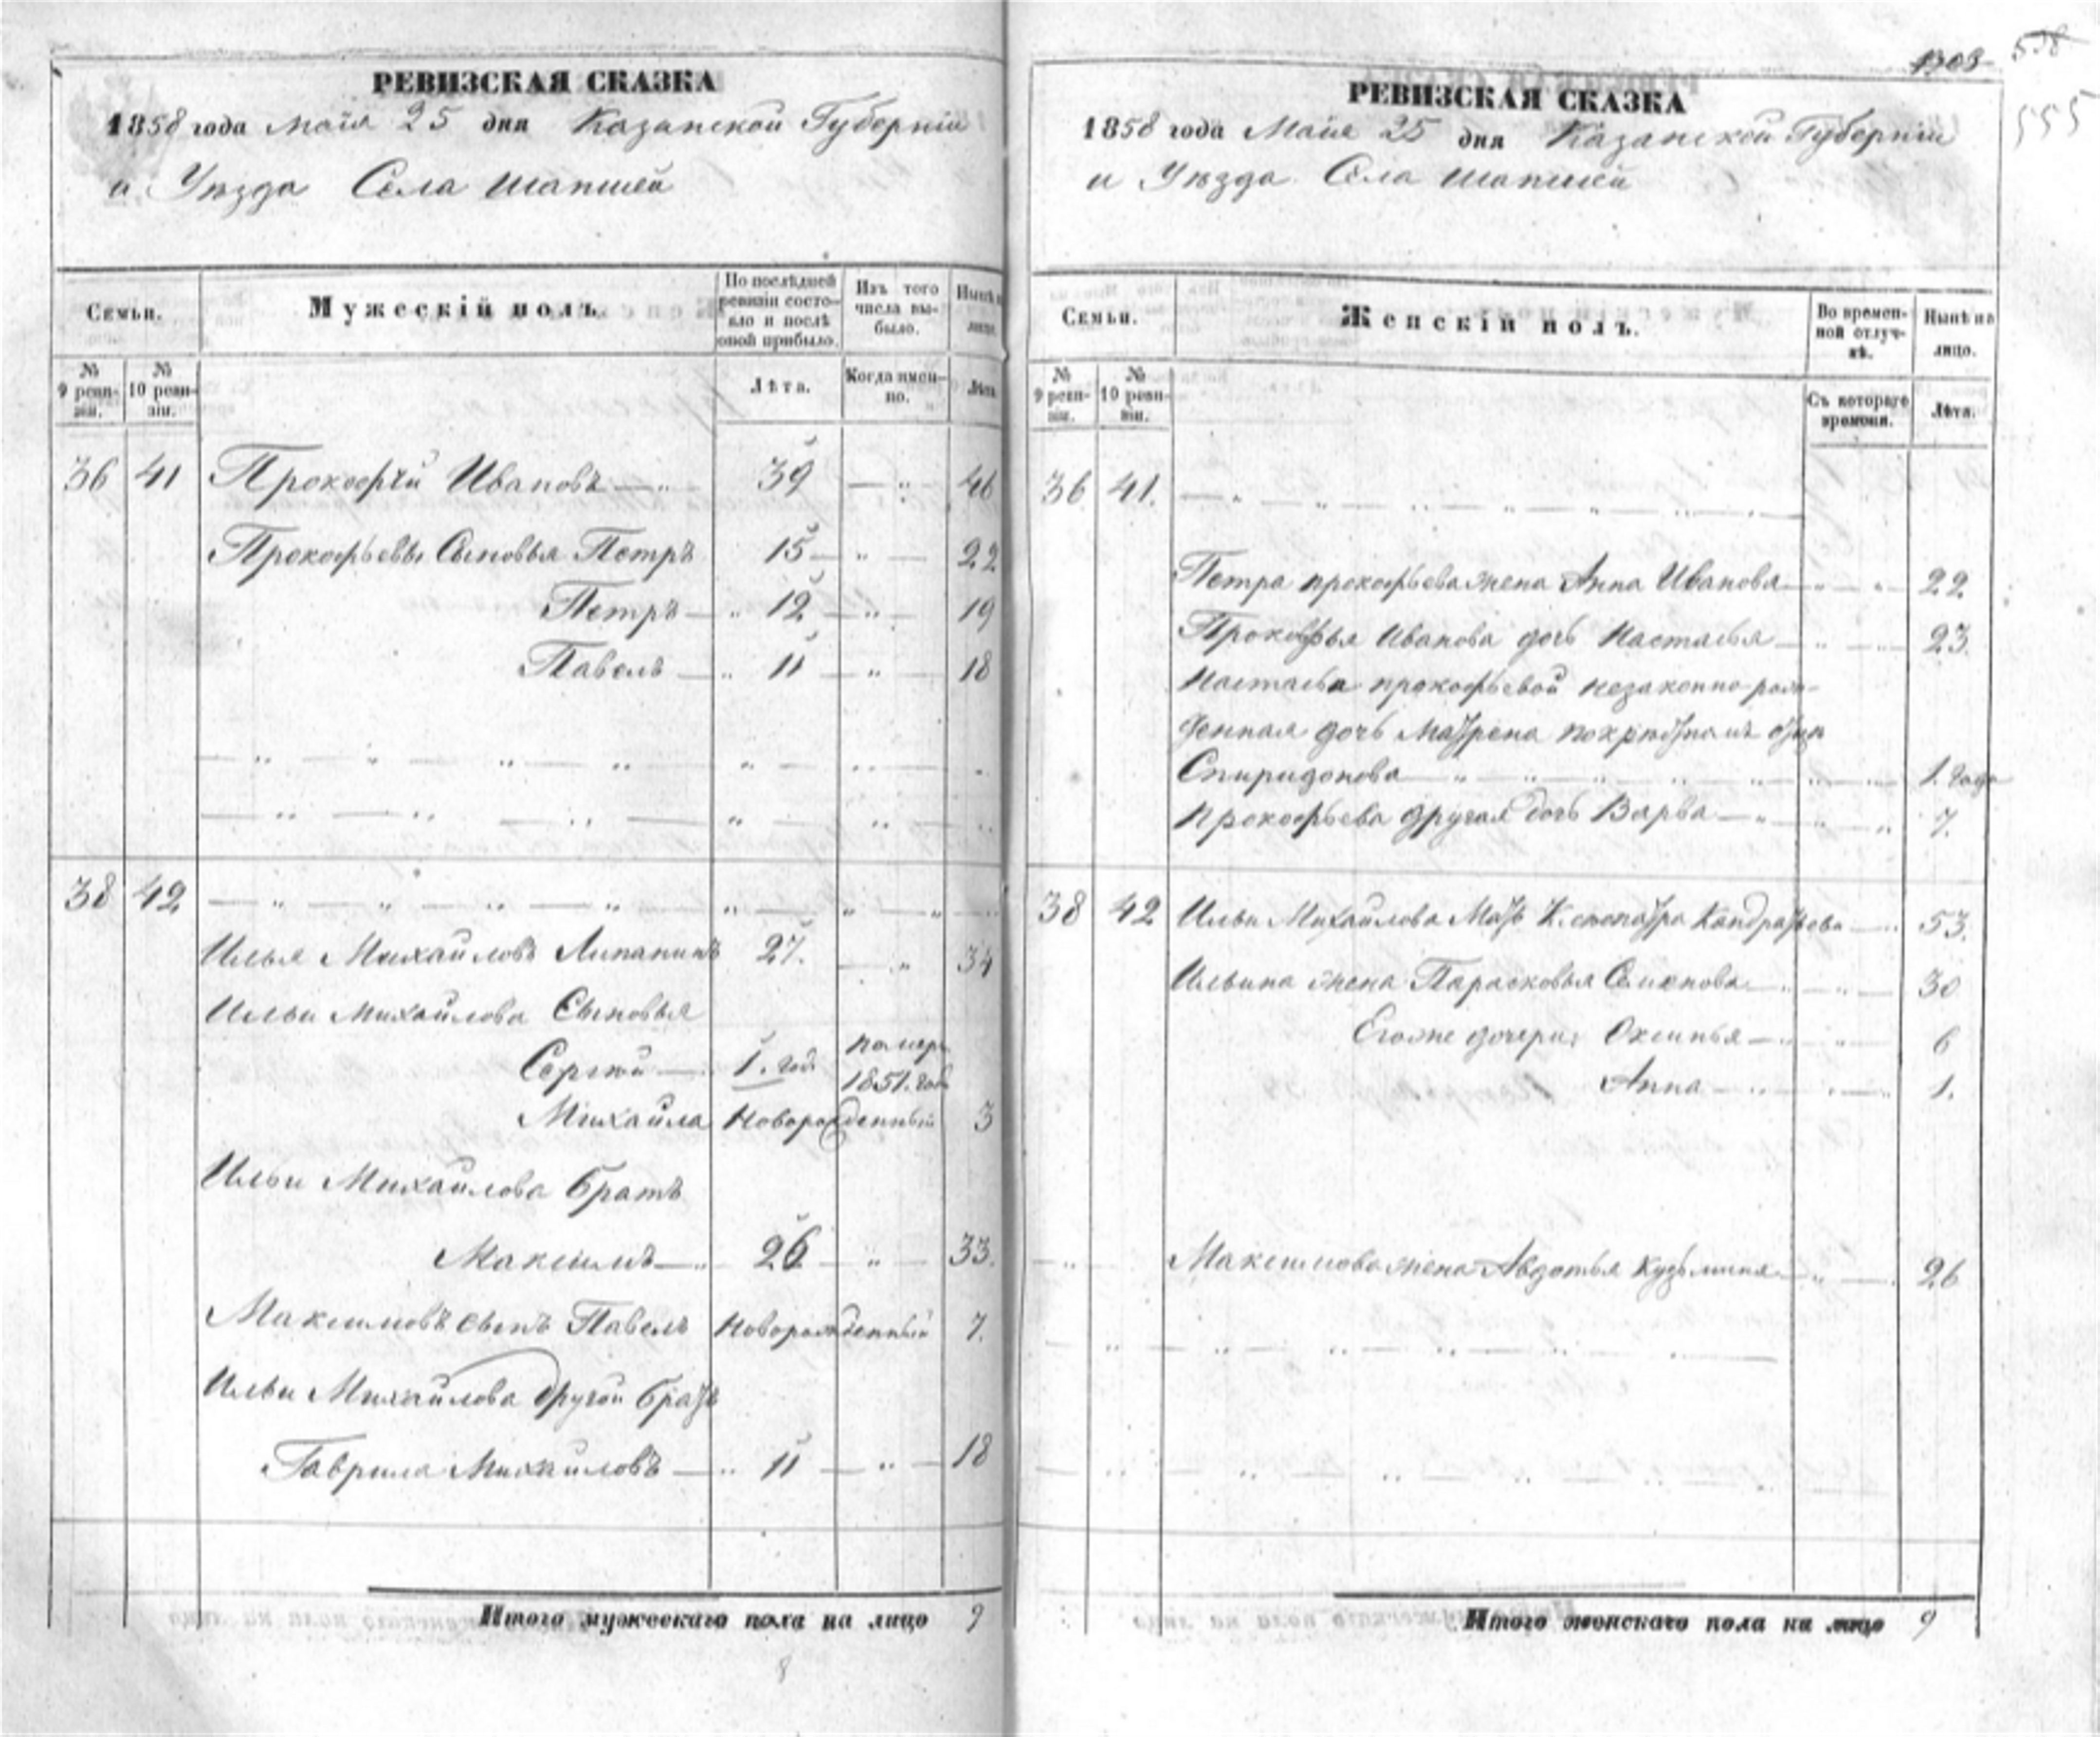 РЕВИЗСКАЯ СКАЗКА
1858 года Маія 25 дня Казанской Губерніи
и Уѣзда Села Шапшей
Семьи.
Мужескій полъ.
По послѣдней ревизіи состо-
яло и послѣ
оной прибыло.
Изъ того
числа вы-
было.
Нынѣ на
лицо.
№
9 реви-
зіи.
№
10 реви-
зіи.
Лѣта.
Когда имен-
но.
Лѣта.
36 41 Прокофій Ивановъ 39 46
Прокофьевы Сыновья Петръ 15 22
Петръ 12 19
Павелъ 11 18
38 42
Илья Михайловъ 27. 34
Ильи Михайлова Сыновья
Сергѣй 1. год помер
1851. год
Михайла Новорожденный 3
Ильи Михайлова братъ
Максимъ 26 33.
Максимовъ сынъ Павелъ Новорожденный 7.
Ильи Михайлова другой братъ
Гаврила Михайловъ 11 18
Итого мужескаго пола на лицо 9
8
1303
558
555
РЕВИЗСКАЯ СКАЗКА
1858 года Маія 25 дня Казанской Губерніи
и Уѣзда Села Шапшей
Семьи.
Женскій полъ.
Во времен-
ной отлуч-
кѣ.
Нынѣ на
лицо.
№
9 реви-
зіи.
№
10 реви-
зіи.
Съ котораго
времени.
Лѣта.
36 41.
Петра прокофьева жена Анна Иванова 22
Прокофья Иванова дочь Настасья 23.
Настасьи прокофьевой незаконно-рож-
денная дочь Матрена
Спиридонова 1. года
Прокофьева другая дочь Варва 7.
38 42 Ильи Михайлова Мать Кандратьева 53.
Ильина жена Парасковья Семенова 30
Егоже дочери: Оксинья 6
Анна 1.
Максимова жена Авдотья Кузьмина 26
Итого женскаго пола на лицо 9